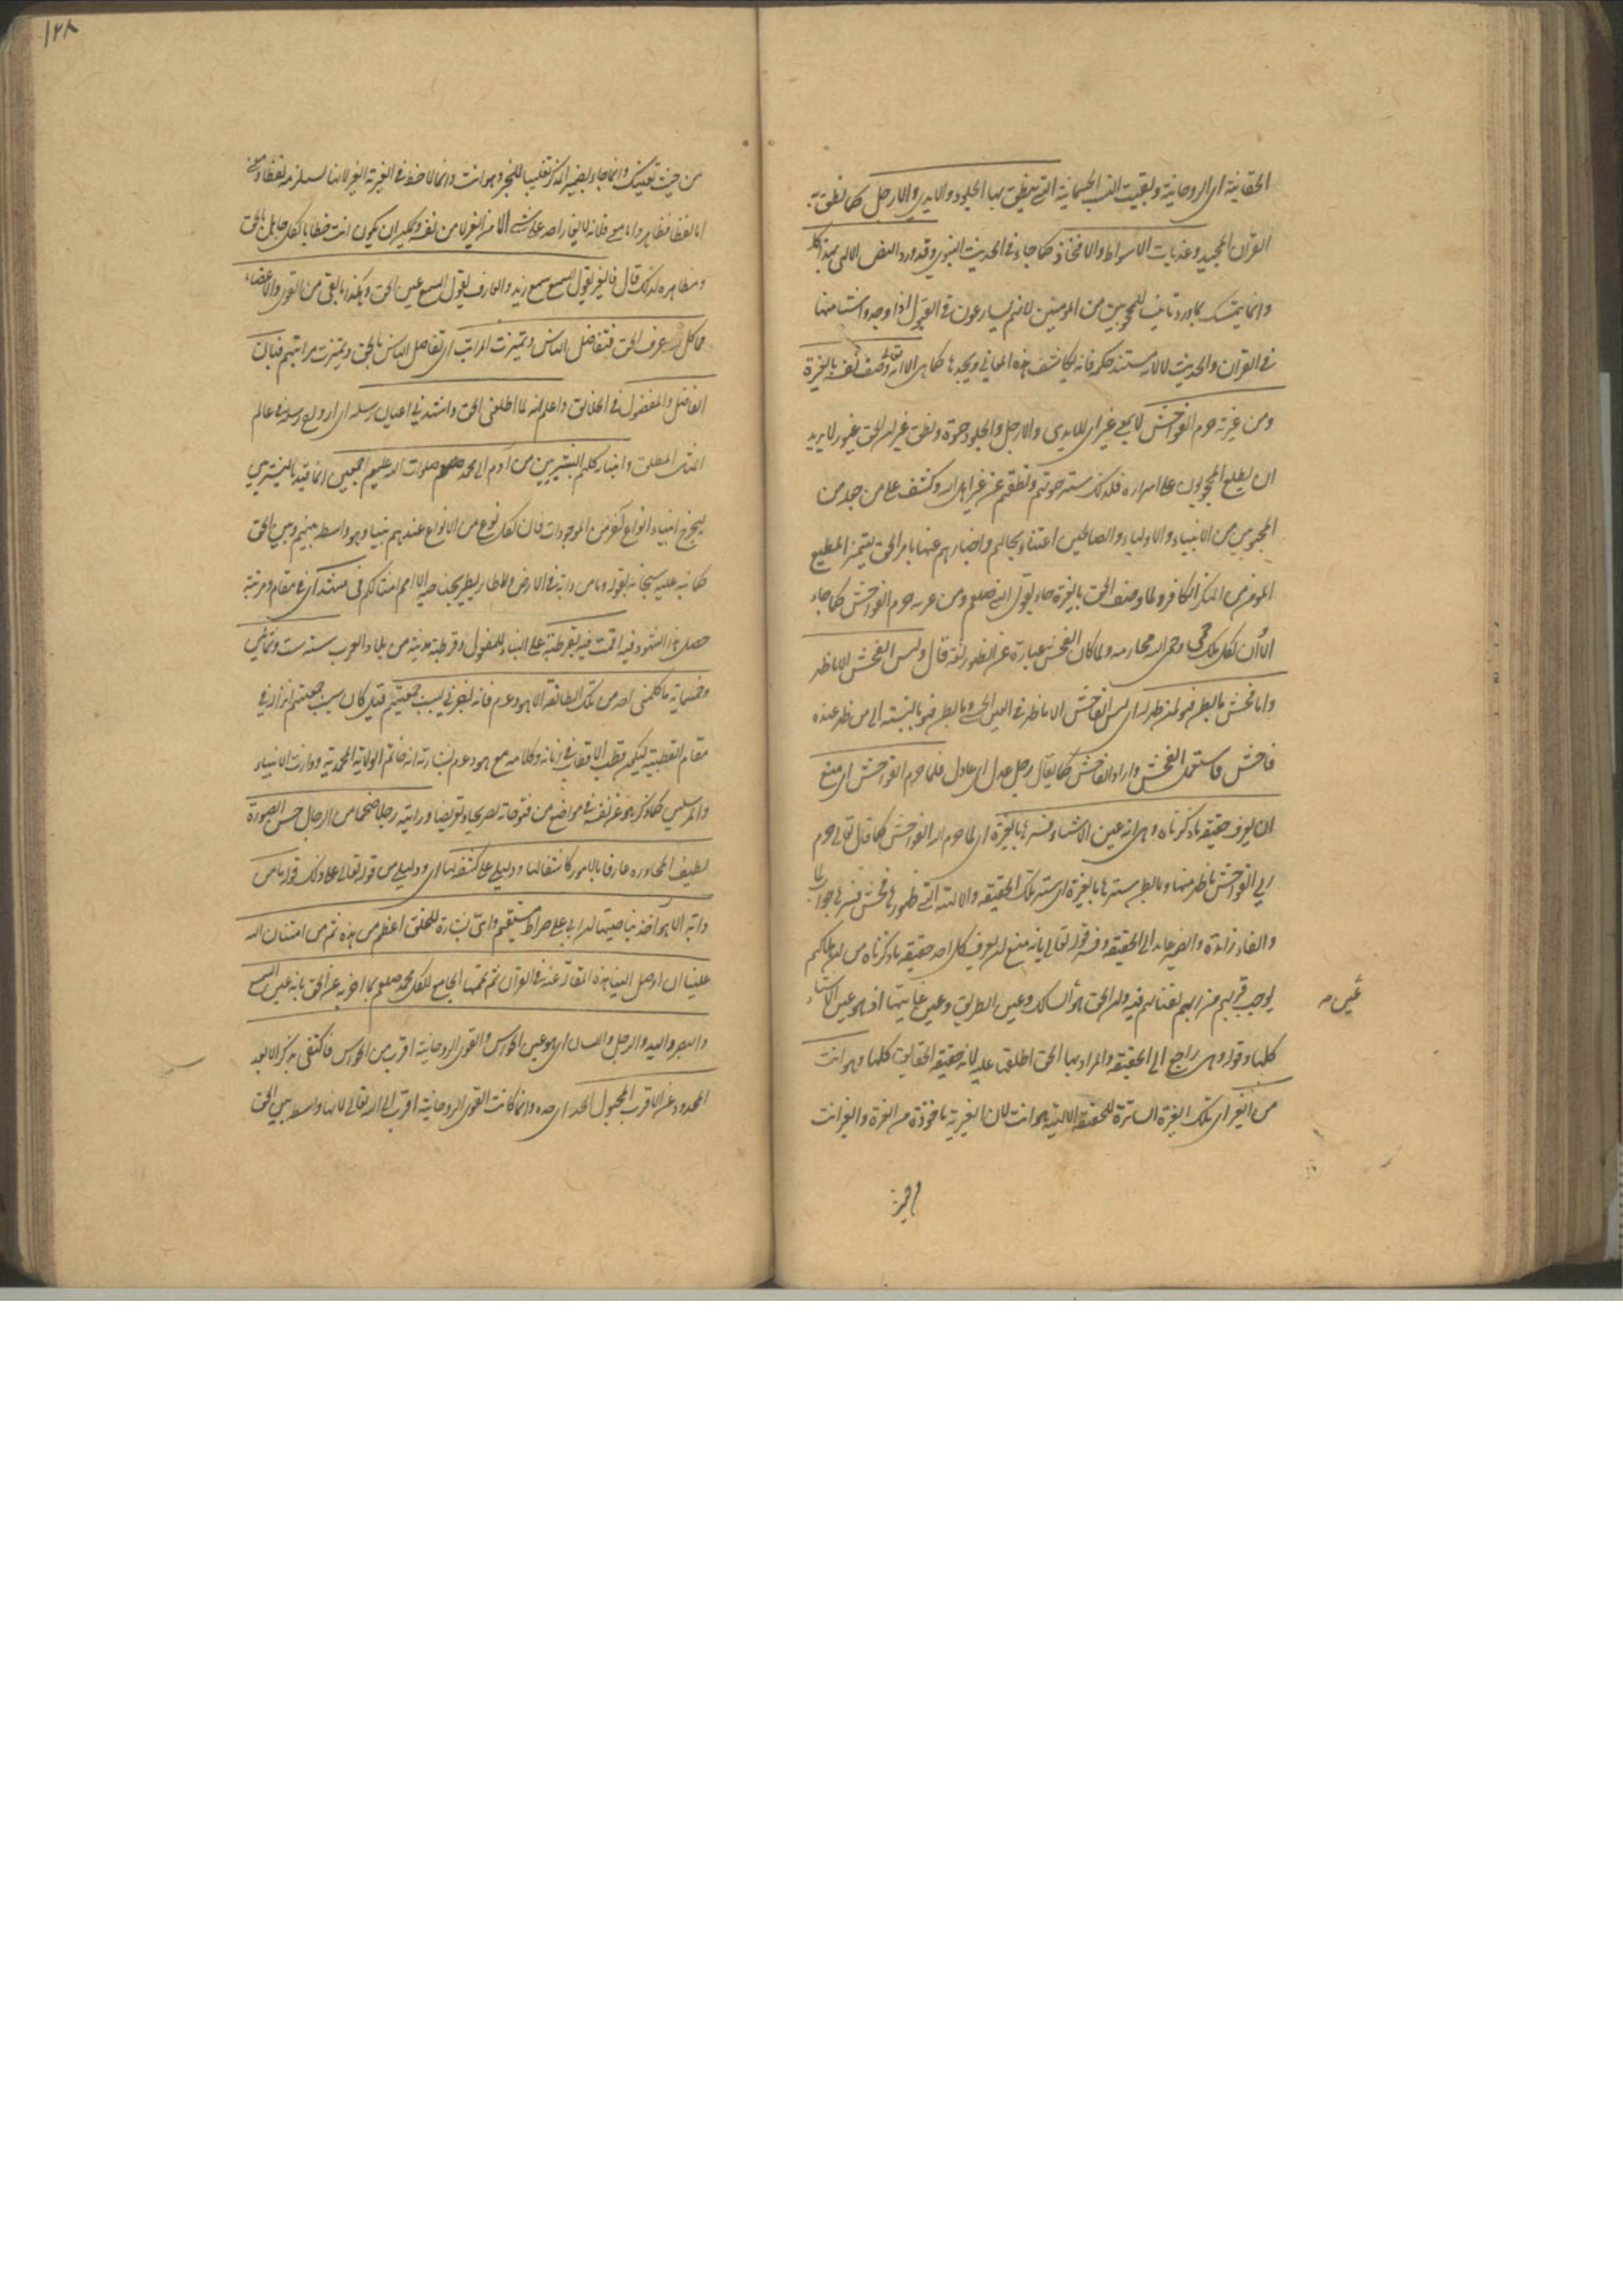 الحقانية اى الروحانية وبقيت النسب الجسمانية التى ينطق بها الجلود والايدى والارجل كما نطق به
القران المجيد وعذبات الاسواط والافخاذ كما جاء فى الحديث النبوى وقد ورد النص الالهى بهذا كله
وانما يتمسك بما ورد تانيسا للمحجوبين من المومنين لانهم يسارعون فى القبول اذا وجدوا شيئا منها
فى القران والحديث لا لانه مستند حكمه فانه يكاشف هذه المعانى ويجدها كما هى الا انه تعالى وصف نفسه بالغيرة
ومن غيرته حرم الفواحش لا يسمع غير اى للايدى والارجل والجلود حيوة ونطق غير ان الحق غيور لا يريد
ان يطلع المحجوبون على اسراره فلذلك ستر حيوتهم ونطقهم عن غير اهل الله وكشف على من جعله من
المحبوبين من الانبياء والاولياء والصالحين اعتناء بحالهم واخبارهم عنها بامر الحق ليتميز المطيع
المومن من المنكر الكافر ولما وصف الحق بالغيرة جاء بقول النبى صلعم ومن غيرته حرم الفواحش كما جاء
الا أن لكل ملك حمى وحمى الله محارمه ولما كان الفحش عبارة عن الظهور لغة قال وليس الفحش الا ما ظهر
واما فحش ما بطن فهو لمن ظهر له اى ليس الفاحش الا ما ظهر فى العين الحسى وما بطن فهو بالنسبة الى من ظهر عنده
فاحش فاستعمل الفحش واراد الفاحش كما يقال رجل عدل اى عادل فلما حرم الفواحش اى منع
ان يعرف حقيقة ما ذكرناه وهى انه عين الاشياء فسترها بالغيرة اى لما حرم الله الفواحش كما قال تعالى حرم
ربى الفواحش ما ظهر منها وما بطن سترها بالغيرة اى ستر تلك الحقيقة والالهية التى ظهورها فحش فسترها جواب لما
والفاء زائدة والضمير عايد الى الحقيقة وفسر قوله تعالى بانه منع ان يعرف كل احد حقيقة ما ذكرناه من
يوجب قربهم من ربهم بفنائهم فيه وان الحق هو السالك وعين الطريق وعين غايتها اذ هو عين الاشياء
عين صح
كلها وقوله وهى راجع الى الحقيقة والمراد بها الحق اطلقت عليه لانه حقيقة الحقايق كلها وهو انت
من الغير اى تلك الغيرة الساترة للحقيقة الالهية هو انت لان الغيرية ماخوذة من الغيرة والغير انت
من حيث
١٢٨
من حيث تعينك وانما جاء بضمير المذكر تغليبا للخبر وهو انت وانما لاحظ فى الغيرة الغير لانها تستلزمه لفظا ومعنى
اما لفظا فظاهر واما معنى فلانه لا يغار احد على شئ الا من الغير لا من نفسه ويمكن ان يكون انت خطابا لكل جاهل بالحق
ومظاهره لذلك قال فالغير يقول السمع سمع زيد والعارف يقول السمع عين الحق وهكذا ما بقى من القوى والاعضاء
فما كل احد عرف الحق فتفاضل الناس وتميزت المراتب اى تفاضل الناس بالحق وتميزت مراتبهم فبان
الفاضل والمفضول فى الخلايق واعلم انه لما اطلعنى الحق واشهدنى اعيان رسله اى ارواح رسله فى عالم
المثال المطلق وانبيائه كلهم البشريين من آدم الى محمد صلعم صلوات الله عليهم اجمعين انما قيد بالبشريين
ليخرج انبياء انواع أخر من الموجودات فان لكل نوع من الانواع عندهم نبيا وهو واسطة بينهم وبين الحق
كما نبه عليه سبحانه بقوله وما من دابة فى الارض ولا طاير يطير بجناحيه الا امم امثالكم فى مشهد أى فى مقام ومرتبة
حصل هذا الشهود فيه اقمت فيه بقرطبة على البناء للمفعول وقرطبة مدينة من بلاد المغرب سنة ست وثمانين
وخمسماية ما كلمنى احد من تلك الطائفة الا هود ع م فانه اخبرنى بسبب جمعيتهم قيل كان سبب جمعيتهم انزاله فى
مقام القطبية ليكون قطب الاقطاب فى زمانه وكلامه مع هود ع م بشارة انه خاتم الولاية المحمدية ووارث الانبياء
والمرسلين كما ذكر هو عن نفسه فى مواضع من فتوحاته تصريحا وتعريضا ورايته رجلا ضخما من الرجال حسن الصورة
لطيف المحاورة عارفا بالامور كاشفا لها ودليلى على كشفه لها اى ودليلى من قوله تعالى على ذلك قوله ما من
دابة الا هو اخذ بناصيتها ان ربى على صراط مستقيم واى بشارة للخلق اعظم من هذه ثم من امتنان الله
علينا ان اوصل الينا هذه المقالة عنه فى القران ثم تممها الجامع للكل محمد صلعم بما اخبر به عن الحق بانه عين السمع
والبصر واليد والرجل واللسان اى هو عين الحواس والقوى الروحانية اقرب من الحواس فاكتفى بذكر الابعد
المحدود عن الاقرب المجهول الحد اى حده وانما كانت القوى الروحانية اقرب الى الله تعالى لانها واسطة بين الحق